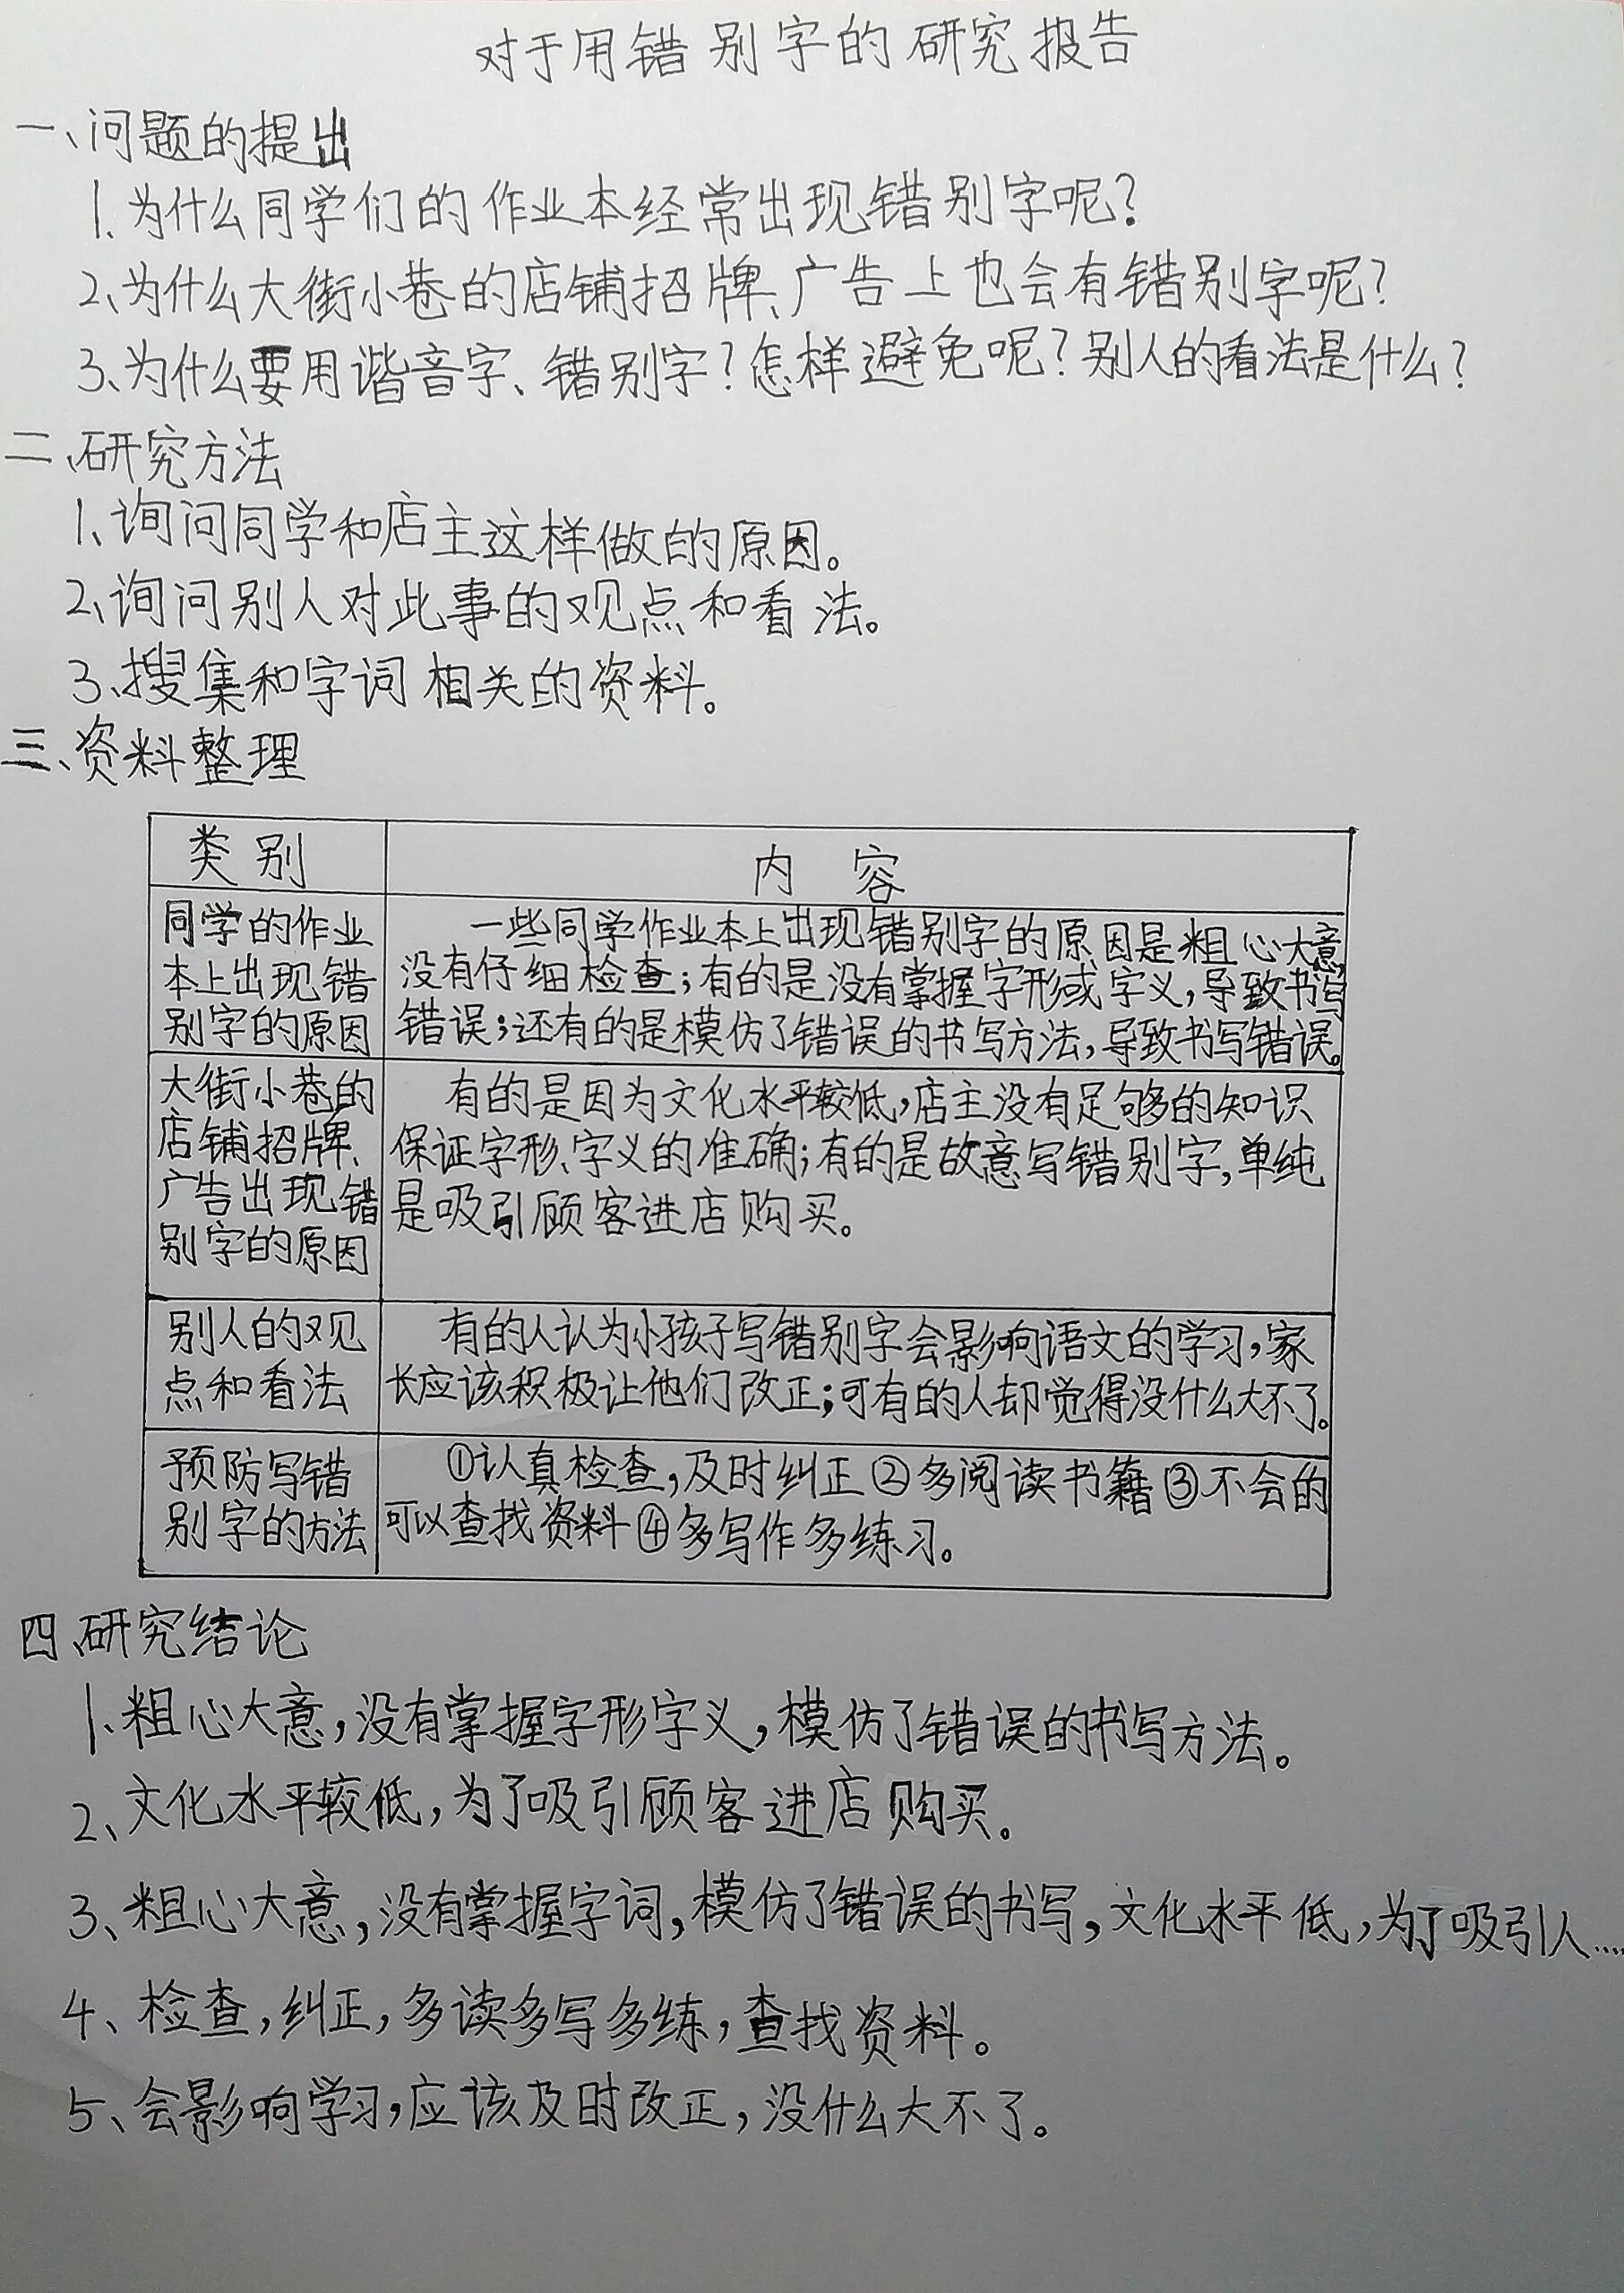 对于用错别字的研究报告
一、问题的提出
1.为什么同学们的作业本经常出现错别字呢?
2、为什么大街小巷的店铺招牌、广告上也会有错别字呢?
3、为什么要用谐音字、错别字?怎样避免呢?别人的看法是什么?
二、研究方法
1、询问同学和店主这样做的原因。
2、询问别人对此事的观点和看法。
3、搜集和字词相关的资料。
三、资料整理
类别
内 容
同学的作业
本上出现错
别字的原因
一些同学作业本上出现错别字的原因是粗心大意,
没有仔细检查;有的是没有掌握字形或字义,导致书写
错误;还有的是模仿了错误的书写方法,导致书写错误。
大街小巷的
店铺招牌、
广告出现错
别字的原因
有的是因为文化水平较低,店主没有足够的知识
保证字形、字义的准确;有的是故意写错别字,单纯
是吸引顾客进店购买。
别人的观
点和看法
有的人认为小孩子写错别字会影响语文的学习,家
长应该积极让他们改正;可有的人却觉得没什么大不了。
预防写错
别字的方法
①认真检查,及时纠正②多阅读书籍③不会的
可以查找资料④多写作多练习。
四、研究结论
1、粗心大意,没有掌握字形字义,模仿了错误的书写方法。
2、文化水平较低,为了吸引顾客进店购买。
3、粗心大意,没有掌握字词,模仿了错误的书写,文化水平低,为了吸引人……
4、检查,纠正,多读多写多练,查找资料。
5、会影响学习,应该及时改正,没什么大不了。